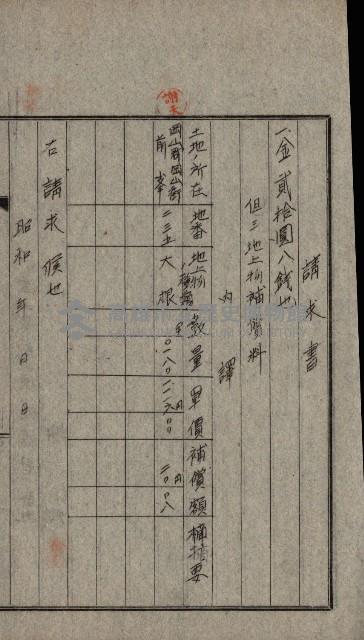 請求書
一金貳拾圓八錢也
但シ地上物補償料
內譯
土地ノ所在 地番 地上物種類 數量 單價 補償額 摘要
岡山郡岡山街前峯 二三五 大根 〇一八〇 一一六〇〇 二〇〇八
右請求候也
昭和 年 月 日